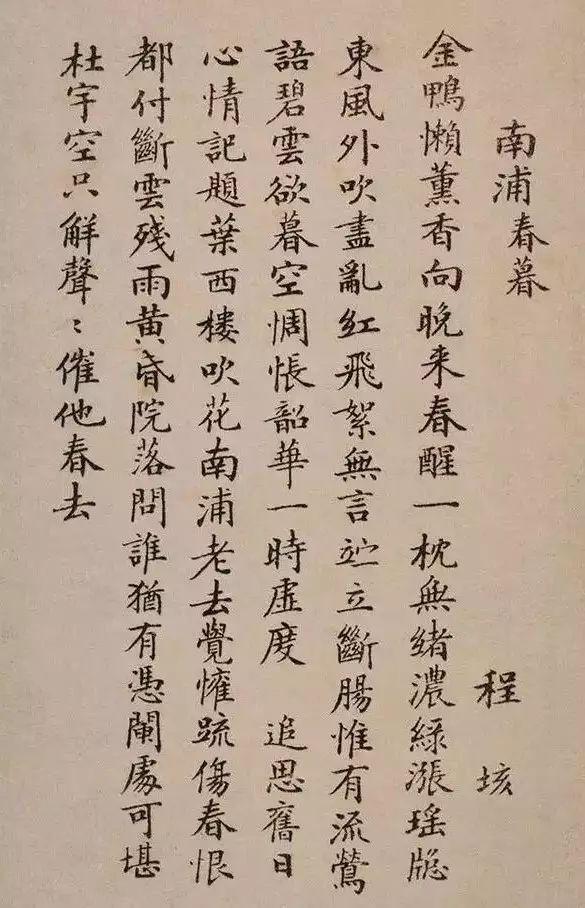 南浦春暮
程垓
金鴨懶薰香向晚来春醒一枕無緒濃綠漲瑤牕
東風外吹盡亂紅飛絮無言竚立斷腸惟有流鶯
語碧雲欲暮空惆悵韶華一時虛度　追思舊日
心情記題葉西樓吹花南浦老去覺懽疏傷春恨
都付斷雲殘雨黄昏院落問誰猶有憑闌處可堪
杜宇空只解聲〻催他春去